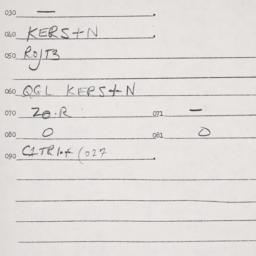 030 —
040 KERSTN
050 ROJTB
060 QGL KERSTN
070 Ze.R 071 —
080 0 081 0
090 C1TR1* (027